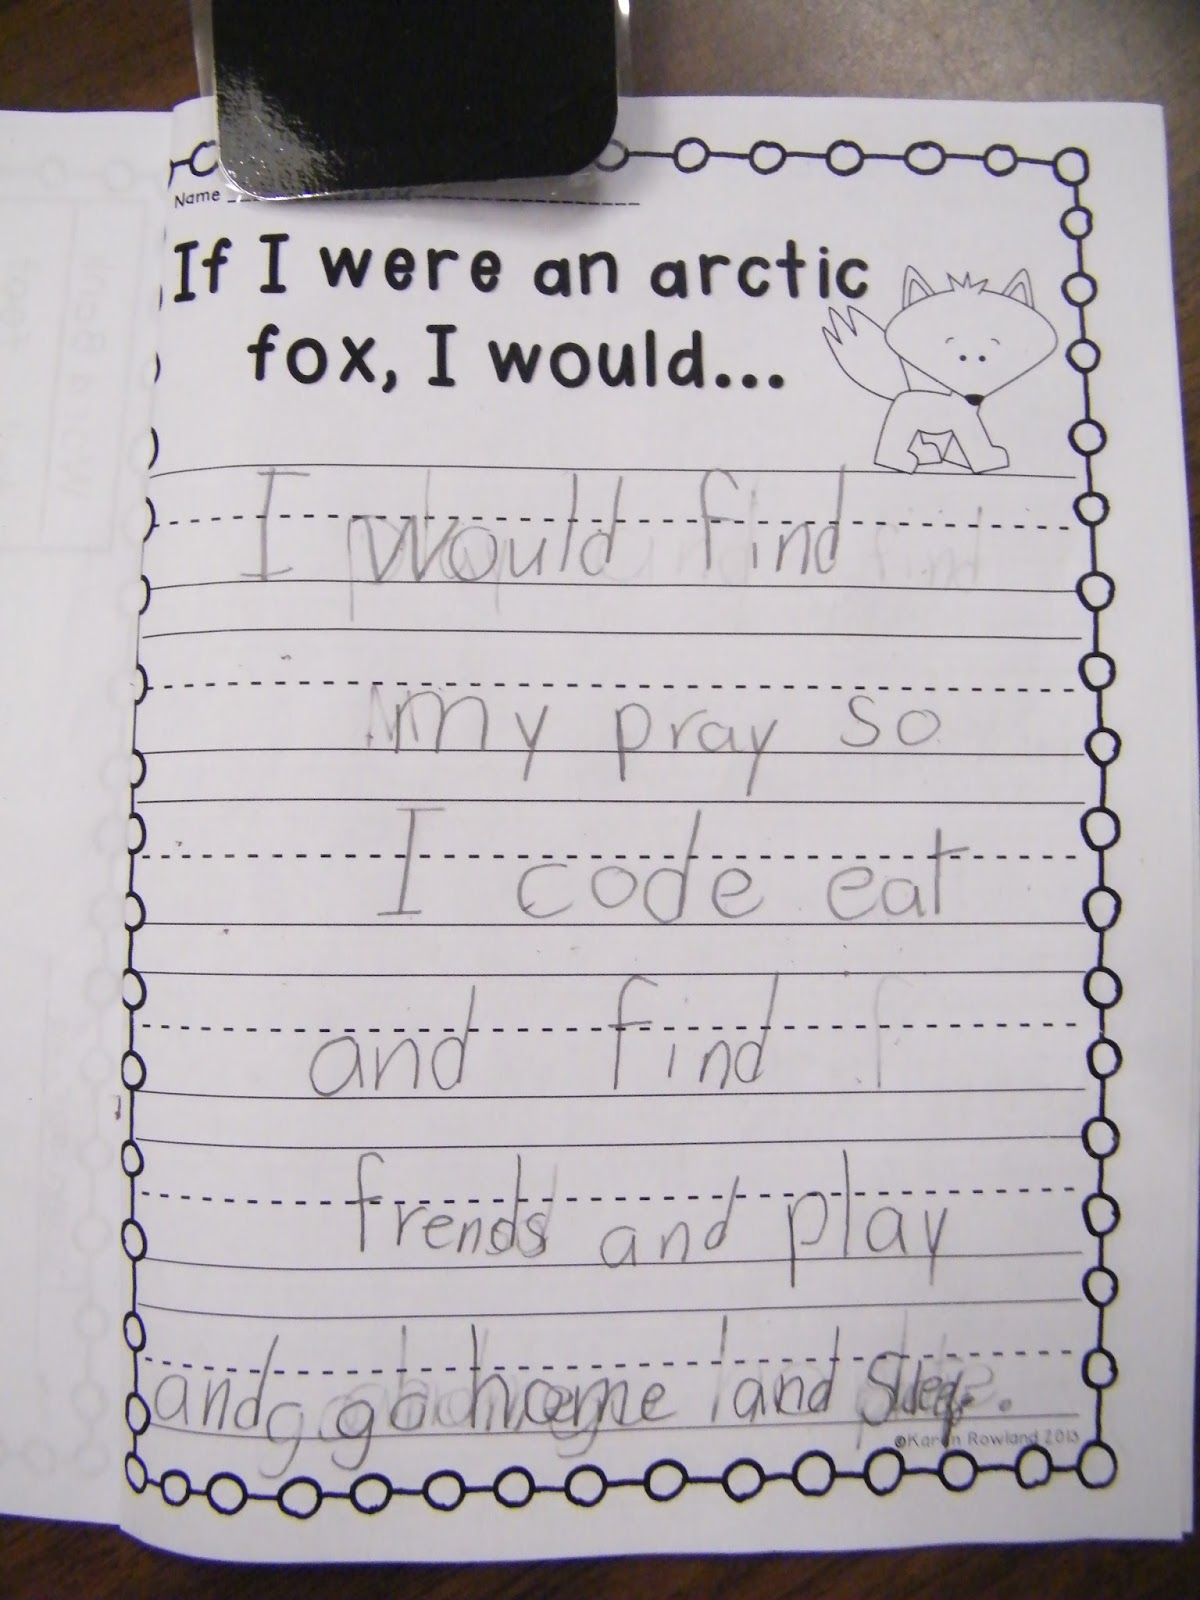 Name
If I were an arctic
fox, I would...
I would find
my pray so
I code eat
and find
frends and play
and go home and sleep.
©Karen Rowland 2013